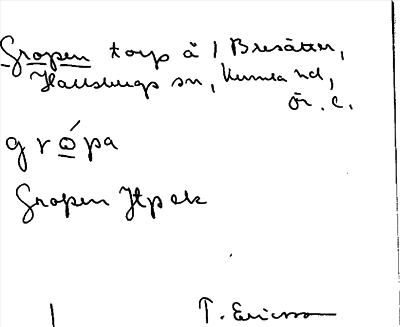 Gropen torp å 1 Bresätter,
Hallsbergs sn, Kumla hd,
Ör. l.
grópa
Gropen Htpek
T. Ericsson